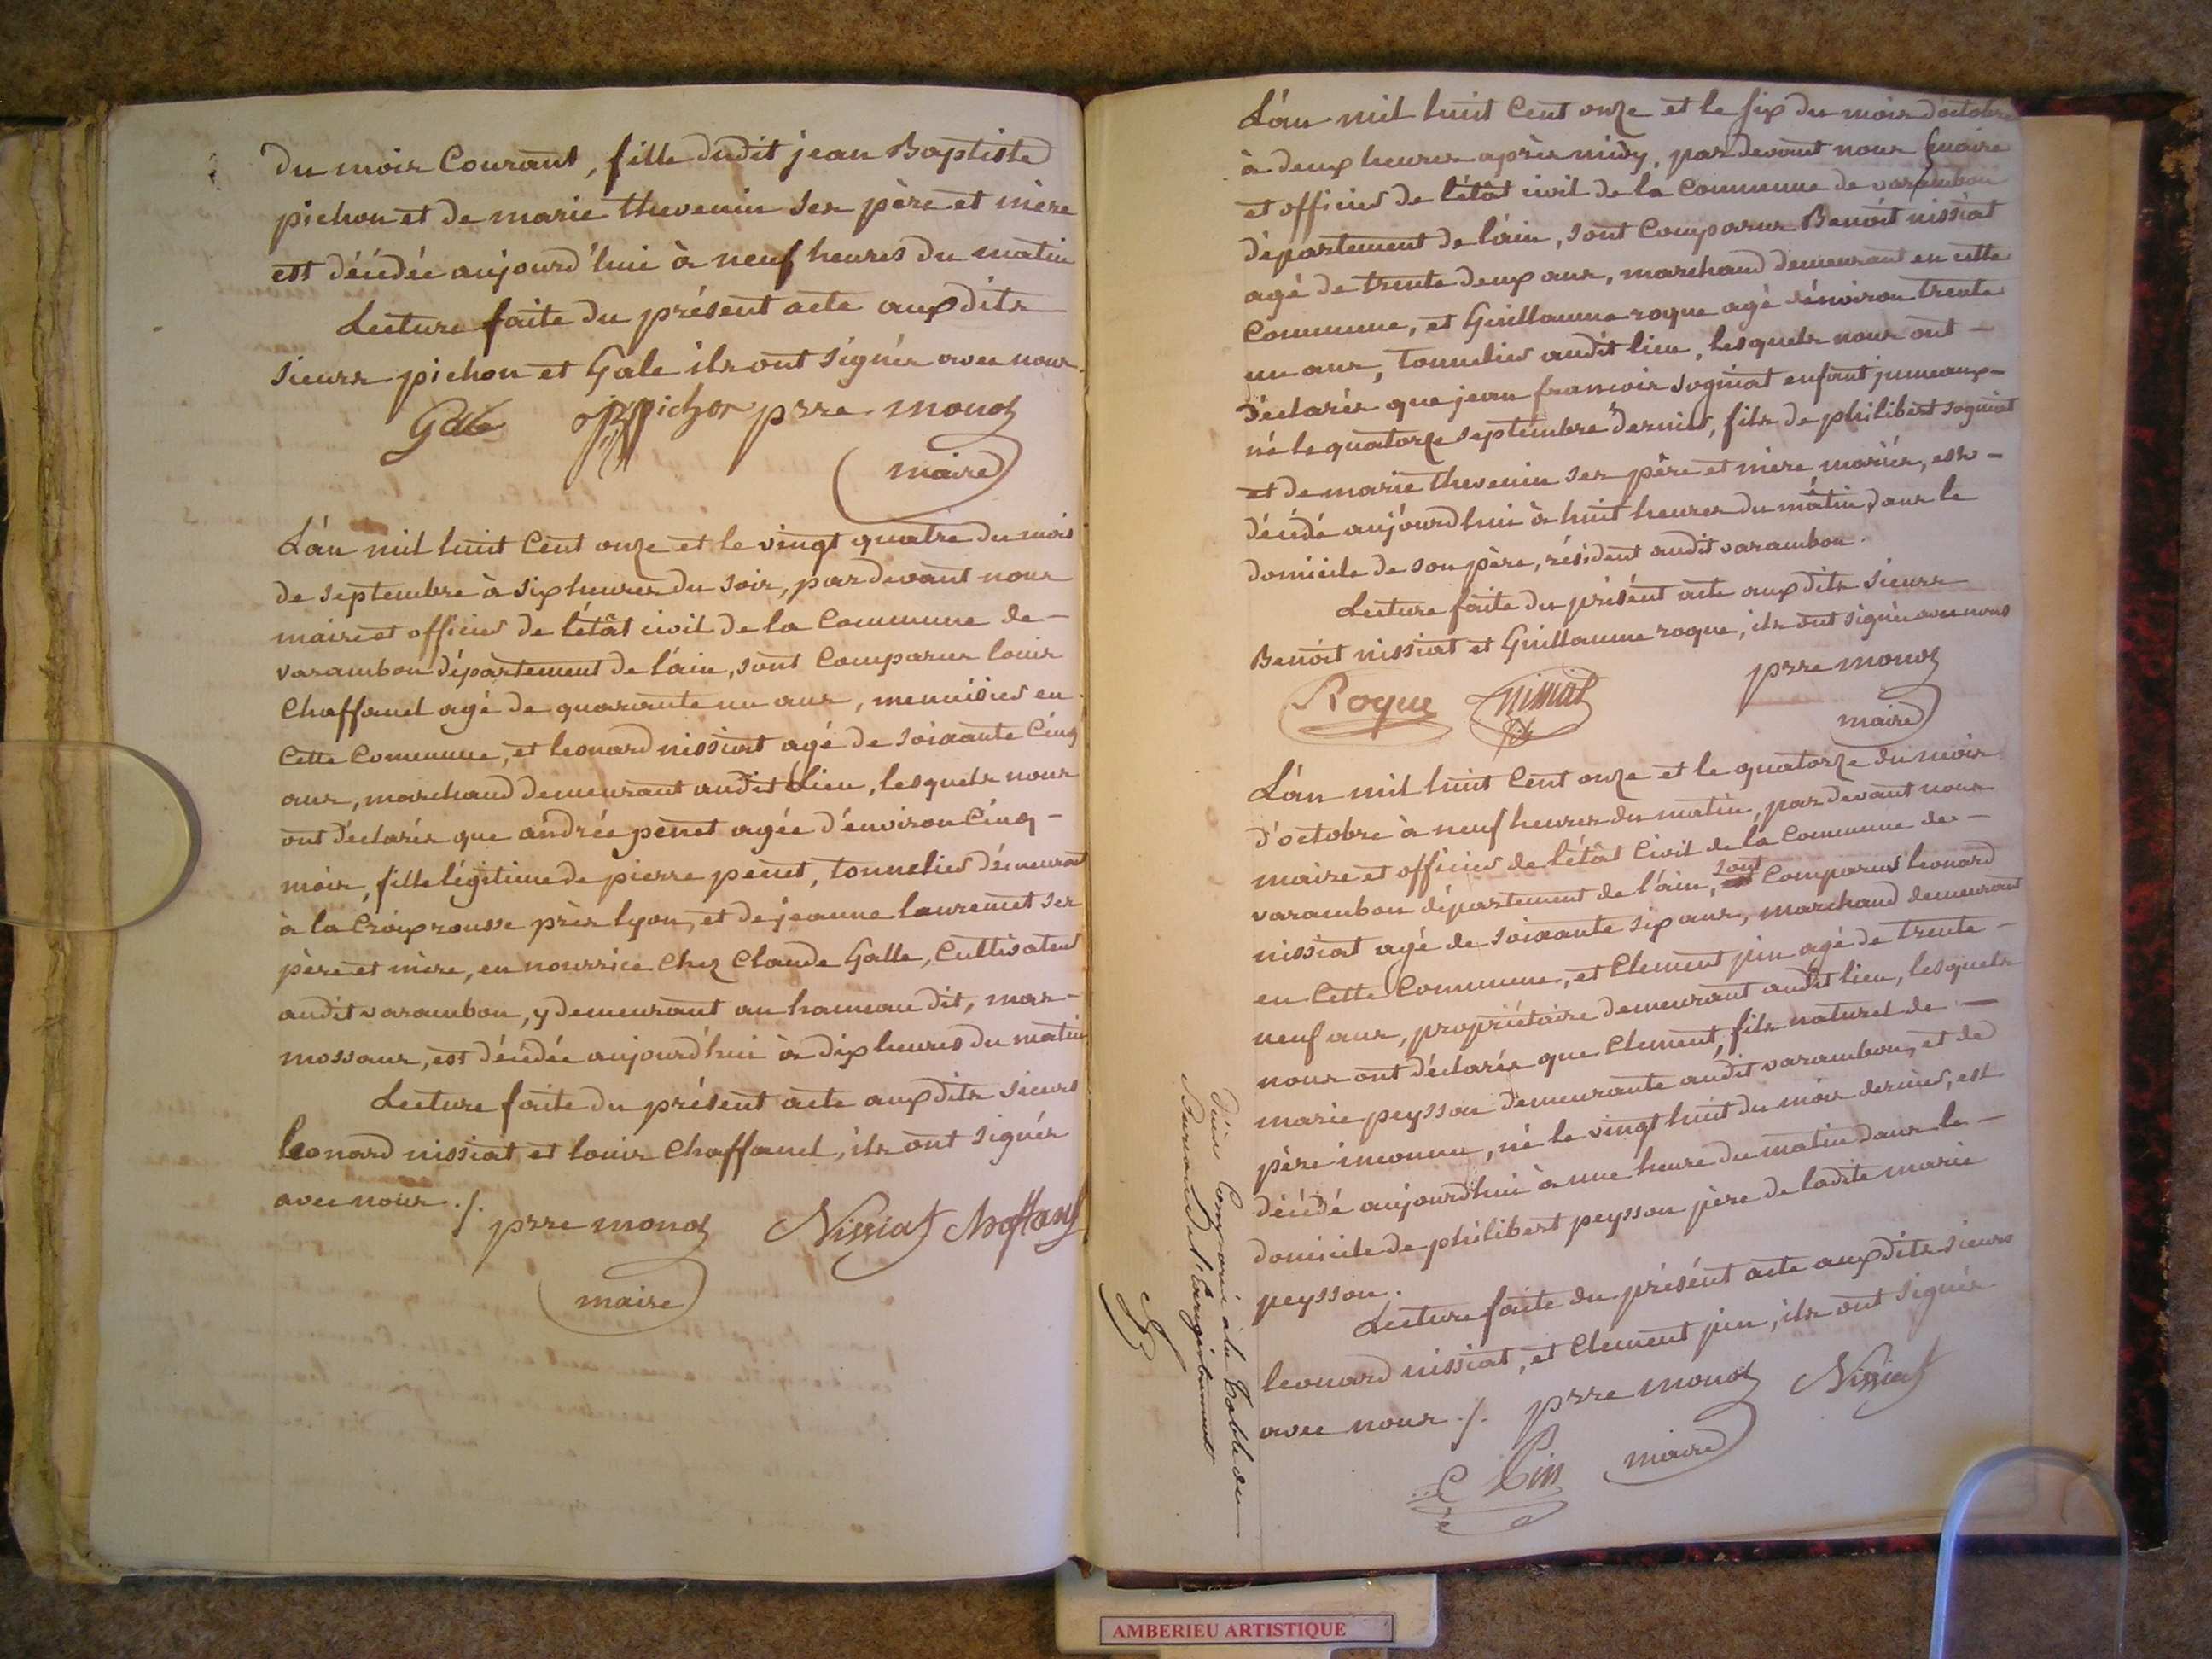 du mois Courant, fille dudit jean Baptiste
pichon et de marie thevenin ses père et mère
est décédée aujourd'hui à neuf heures du matin
Lecture faite du présent acte auxdits
sieurs pichon et Gale ils ont signés avec nous.
Gale JBpichon pre monod
maire
L'an mil huit Cent onze et le vingt quatre du mois
de septembre à six heures du soir, pardevant nous
maire et officier de l'état civil de la Commune de -
varambon département de l'ain, sont Comparus louis
Chaffaud agé de quarante un ans, menuisier en
Cette Commune, et leonard nissiat agé de soixante Cinq
ans, marchand demeurant audit Lieu, lesquels nous
ont déclarés que andrée penet agée d'environ Cinq -
mois, fille légitime de pierre penet, tonnelier démeurant
à la Croix rousse près lyon, et de jeanne laurencet ses
père et mère, en nourrice Chez Claude Galle, Cultivateur
audit varambon, y demeurant au hameau dit, mar-
mossans, est décédée aujourd'hui à dix heures du matin
Lecture faite du présent acte auxdits sieurs
leonard nissiat et louis Chaffaud, ils ont signés
avec nous ./. pre monod Nissiat Choffaud
maire
L'an mil huit Cent onze et le six du mois d'octobre
à deux heures après midy, pardevant nous maire
et officier de l'état civil de la Commune de varambon
département de l'ain, sont Comparus Benoit nissiat
agé de trente deux ans, marchand demeurant en cette
Commune, et Guillaume roque agé d'énviron trente
un ans, tonnelier audit lieu, lesquels nous ont -
déclarés que jean francois sogniat enfant jumeaux -
né le quatorze septembre dernier, fils de philibert sogniat
et de marie thevenin ses père et mère mariés, est -
décédé aujourdhui à huit heures du mâtin, dans le
domicile de son père, résident audit varambon.
Lecture faite du présent acte auxdits sieurs
Benoit nissiat et Guillaume roque, ils ont signés avec nous
Roque nissiat pre monod
maire
L'an mil huit Cent onze et le quatorze du mois
d'octobre à neuf heures du matin, pardevant nous
maire et officier de l'état Civil de la Commune de -
varambon département de l'ain, sont Comparus leonard
nissiat agé de soixante six ans, marchand demeurant
en Cette Commune, et Clement pin agé de trente -
neuf ans, propriétaire demeurant audit lieu, lesquels
nous ont déclarés que Clement, fils naturel de -
marie peysson demeurante audit varambon, et de
père inconnu, né le vingt huit du mois dernier, est
décédé aujourdhui à une heure du matin dans le -
domicile de philibert peysson père de ladite marie
peysson.
Lecture faite du présent acte auxdits sieurs
leonard nissiat, et Clement pin, ils ont signés
avec nous ./. pre monod Nissiat
C Pin maire
Comparé à la table du
Bureau de l'Enregistrement
AMBERIEU ARTISTIQUE